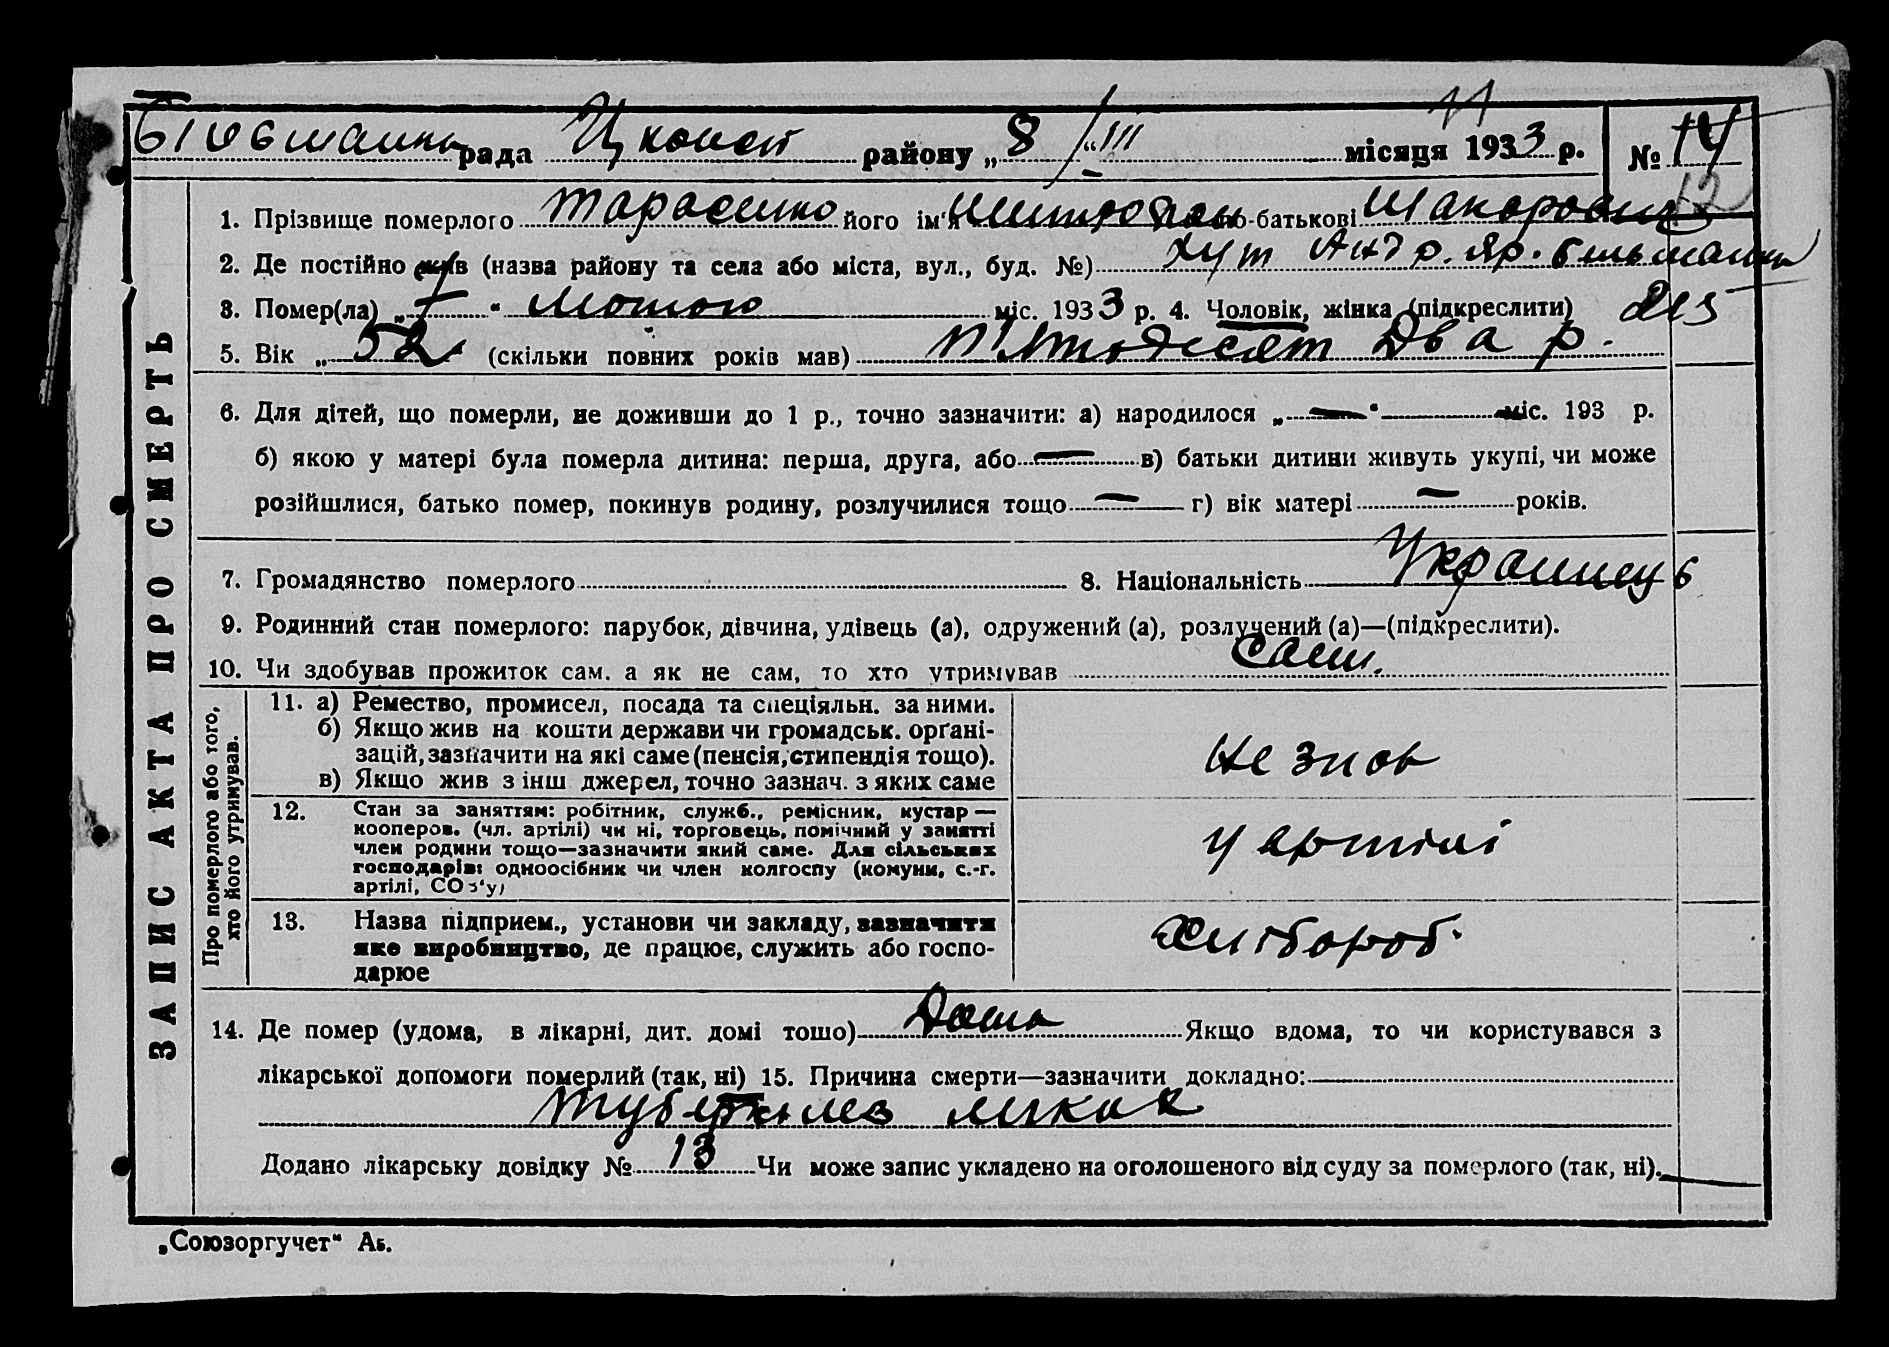 рада район у „ 8 “ III місяця 1933 р. № 14
12
1. Прізвище померлого Тарасенко його ім'я Митрофан по-батькові
2. Де постійно жив (назва району та села або міста, вул., буд. №) хут Андр. Яр.
3. Помер(ла) „ 7 “ лютого міс. 1933 р. 4. Чоловік, жінка (підкреслити)
5. Вік „ 52 “ (скільки повних років мав) п'ятдесят два р.
6. Для дітей, що померли, не доживши до 1 р., точно зазначити: а) народилося „ — “ — міс. 193 р.
б) якою у матері була померла дитина: перша, друга, або — в) батьки дитини живуть укупі, чи може
розійшлися, батько помер, покинув родину, розлучилися тощо — г) вік матері — років.
7. Громадянство померлого 8. Національність Украинец
6
9. Родинний стан померлого: парубок, дівчина, удівець (а), одружений (а), розлучений (а)—(підкреслити).
10. Чи здобував прожиток сам. а як не сам, то хто утримував сам.
ЗАПИС АКТА ПРО СМЕРТЬ
Про померлого або того, хто його утримував.
11. а) Ремество, промисел, посада та спеціяльн. за ними.
б) Якщо жив на кошти держави чи громадськ. орґані-
зацій, зазначити на які саме (пенсія, стипендія тощо).
в) Якщо жив з інш джерел, точно зазнач. з яких саме
12. Стан за заняттям: робітник, служб., ремісник, кустар —
кооперов. (чл. артілі) чи ні, торговець, помічний у занятті
член родини тощо—зазначити який саме. Для сільських
господарів: одноосібник чи член колгоспу (комуни, с.-г.
артілі, СОЗ'у)
у артілі
13. Назва підприєм., установи чи закладу, зазначити
яке виробництво, де працює, служить або госпо-
дарює
хлібороб.
14. Де помер (удома, в лікарні, дит. домі тощо) Дома Якщо вдома, то чи користувався з
лікарської допомоги померлий (так, ні) 15. Причина смерти—зазначити докладно:
Туберкулез
Додано лікарську довідку № 13 Чи може запис укладено на оголошеного від суду за померлого (так, ні).
„Союзоргучет“ Аб.